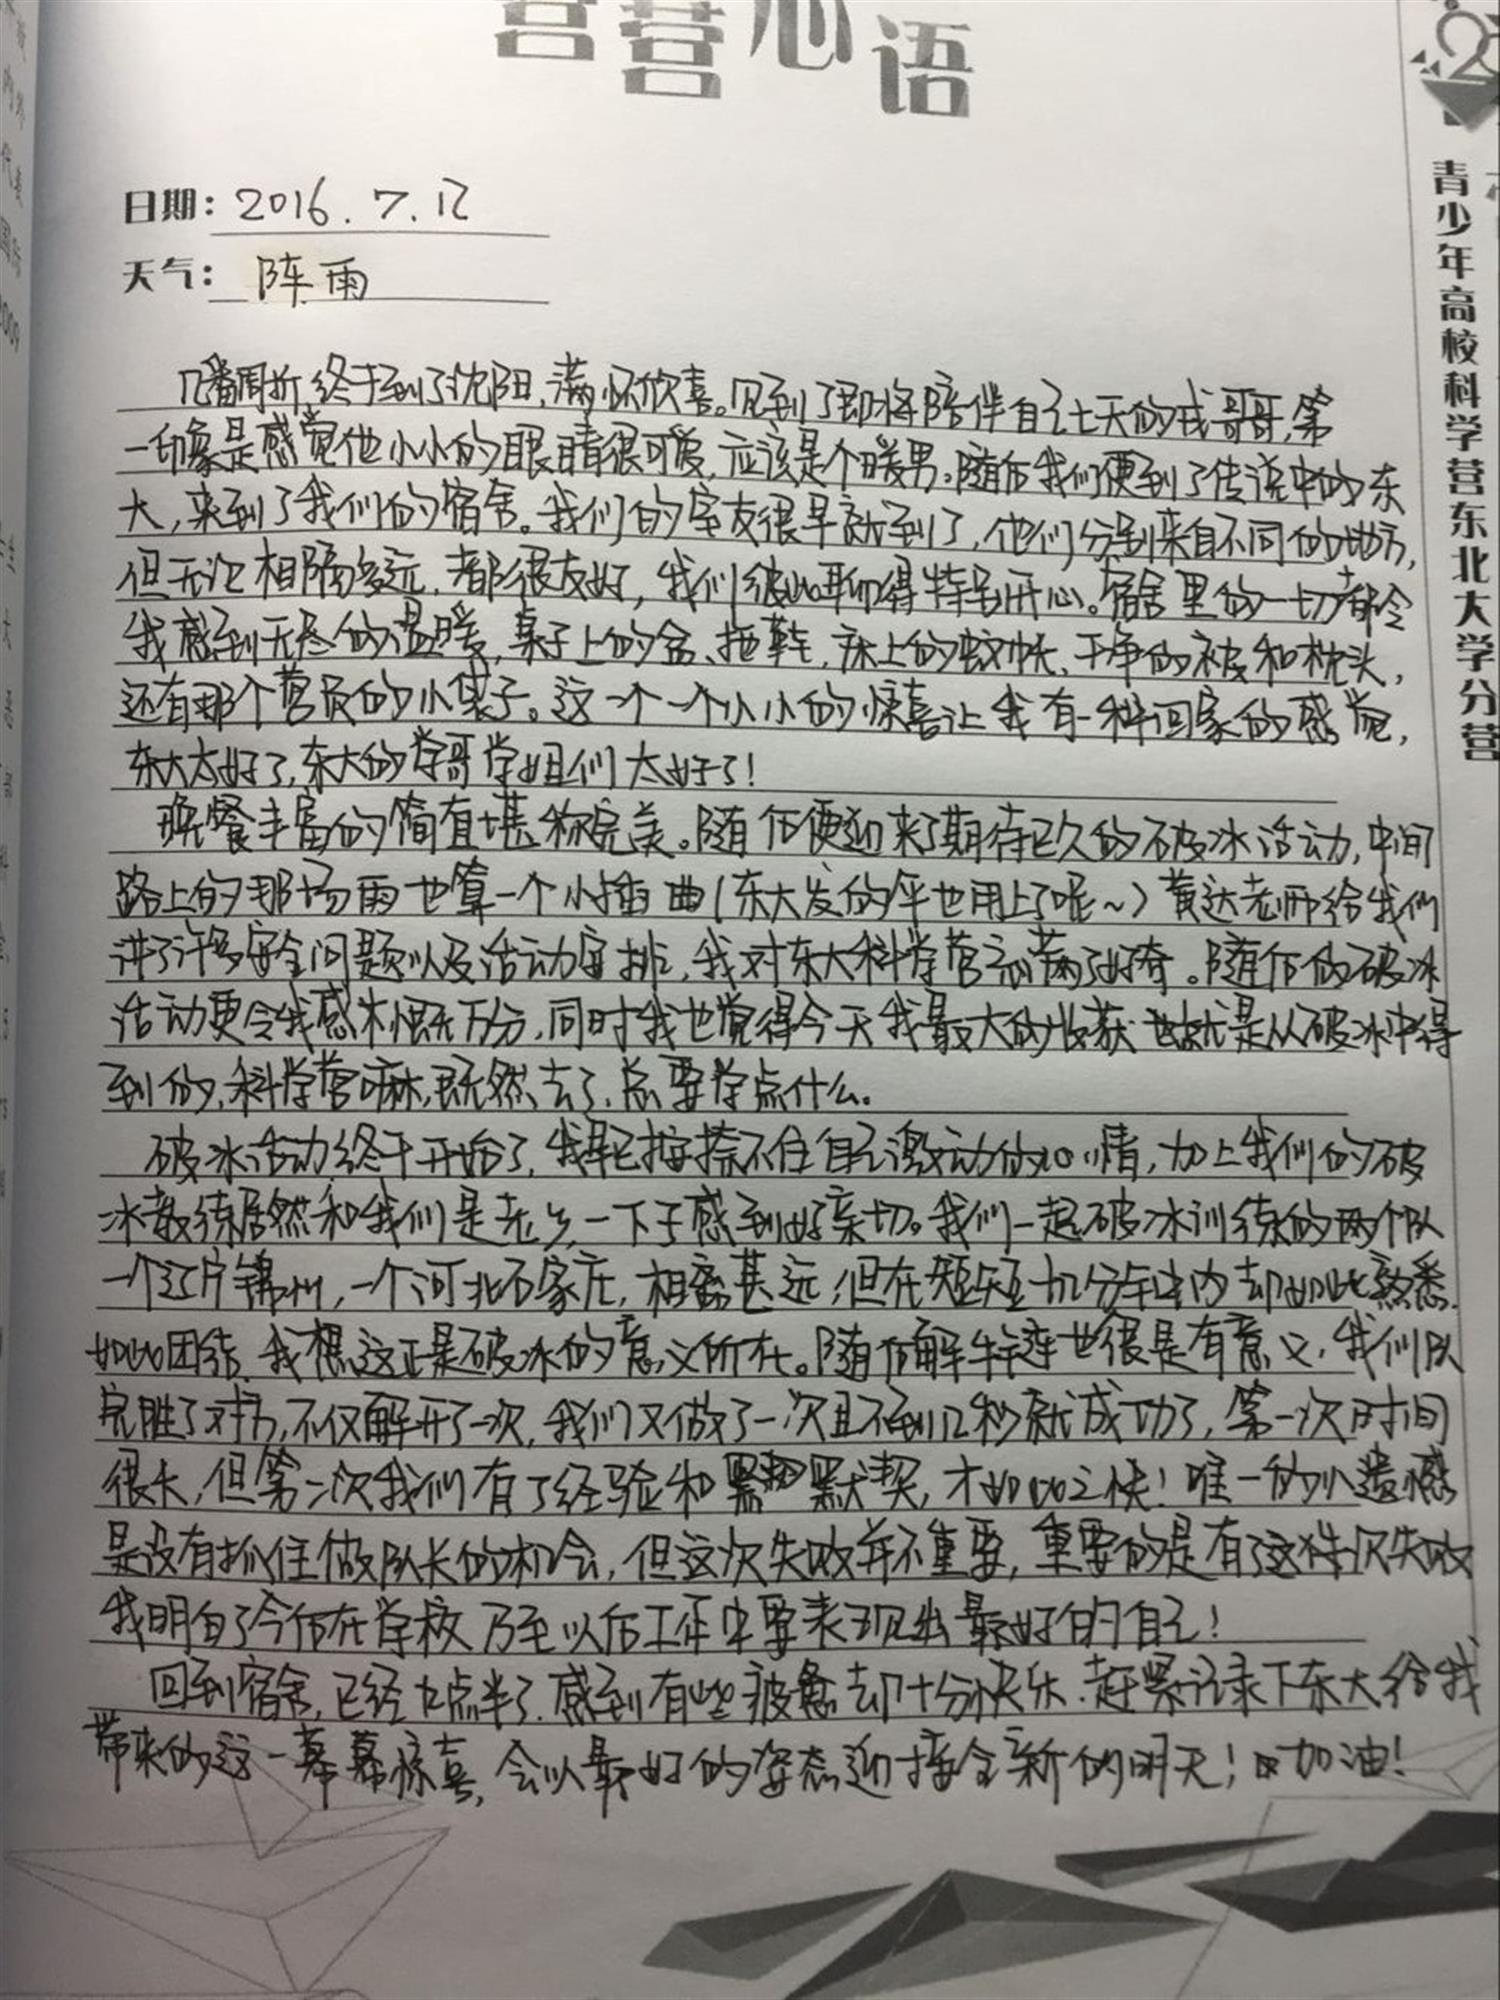 营营心语
日期：2016.7.12
天气：阵雨
几番周折，终于到了沈阳，满怀欣喜。见到了即将陪伴自己七天的戎哥哥，第
一印象是感觉他小小的眼睛很可爱，应该是个暖男。随后我们便到了传说中的东
大，来到了我们的宿舍。我们的室友很早就到了，他们分别来自不同的地方，
但无论相隔多远，都很友好，我们彼此聊得特别开心。宿舍里的一切都令
我感到无尽的温暖，桌子上的盆、拖鞋，床上的蚊帐、干净的被和枕头，
还有那个营员的小袋子。这一个一个小小的惊喜让我有一种回家的感觉，
东大太好了，东大的学哥学姐们太好了！
晚餐丰富的简直堪称完美。随后便迎来了期待已久的破冰活动，中间
路上的那场雨也算一个小插曲（东大发的伞也用上了呢~）黄达老师给我们
讲了许多安全问题以及活动安排，我对东大科学营充满了好奇。随后的破冰
活动更令我感木慨万分，同时我也觉得今天我最大的收获也就是从破冰中得
到的，科学营嘛，既然去了，总要学点什么。
破冰活动终于开始了，我早已按捺不住自己激动的心情，加上我们的破
冰教练居然和我们是老乡，一下子感到好亲切。我们一起破冰训练的两个队
一个辽宁锦州，一个河北石家庄，相离甚远，但在短短几十分钟内却如此熟悉，
如此团结，我想这正是破冰的意义所在。随后解手链也很是有意义，我们队
完胜了对方，不仅解开了一次，我们又做了一次且不到几秒就成功了，第一次时间
很长，但第二次我们有了经验和默契，才如此之快！唯一的小遗憾
是没有抓住做队长的机会，但这次失败并不重要，重要的是有了这样一次失败
我明白了今后在学校乃至以后工作中要表现出最好的自己！
回到宿舍，已经九点半了，感到有些疲惫却十分快乐，赶紧记录下东大给我
带来的这一幕幕惊喜，会以最好的姿态迎接全新的明天！加油！
青少年高校科学营东北大学分营
2009